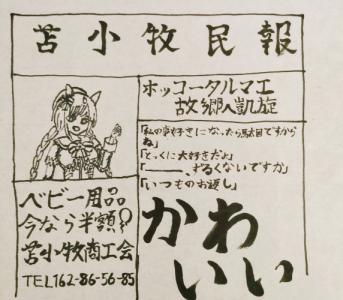 苫小牧民報
ホッコータルマエ
故郷へ凱旋
「私の事好きになったら駄目ですから
ね」
「とっくに大好きだよ」
「―――、ずるくないですか」
「いつものお返し」
かわ
いい
ベビー用品
今なら半額
苫小牧商工会
TEL162-86-56-85